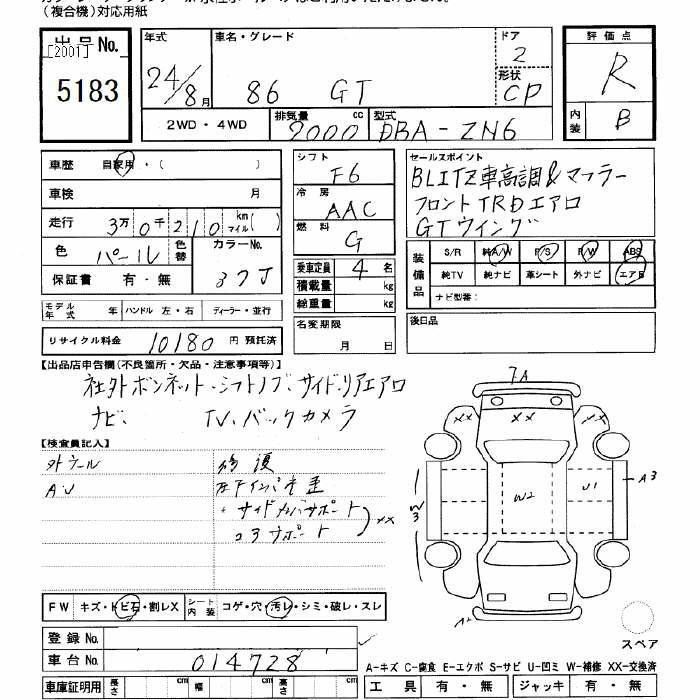 (複合機)対応用紙
出品No.
[2001]
5183
年式 車名・グレード ドア 評価点
24/8月 86 GT 2 R
形状 CP
2WD・4WD 排気量 2000 cc 型式 DBA-ZN6 内装 B
車歴 自家用・( ) シフト F6 セールスポイント
BLITZ車高調&マフラー
車検 月 冷房 AAC フロントTRDエアロ
走行 3万0千210 km マイル( ) 燃料 G GTウイング
色 パール 色替 カラーNo. 37J
保証書 有・無 乗車定員 4名
積載量 kg
総重量 kg
装備品 S/R 純A/W P/S P/W ABS
純TV 純ナビ 革シート 外ナビ エアB
ナビ型番:
モデル年式 年 ハンドル 左・右 ディーラー・並行
名変期限 月 日 後日品
リサイクル料金 10180 円 預託済
【出品店申告欄(不良箇所・欠品・注意事項等)】
社外ボンネット・シフトノブ・サイド・リアエアロ
ナビ・ TV・バックカメラ
【検査員記入】
外ウール 修復
AU
サイドカバサポート
コアサポート XX
7A
XX XX
W2 U1 A3
W3
A2
FW キズ・トビ石・割レX シート内装 コゲ・穴・汚レ・シミ・破レ・スレ
スペア
登録No.
車台No. 014728
A-キズ C-腐食 E-エクボ S-サビ U-凹ミ W-補修 XX-交換済
車庫証明用 長さ cm 幅 cm 高さ cm 工具 有・無 ジャッキ 有・無